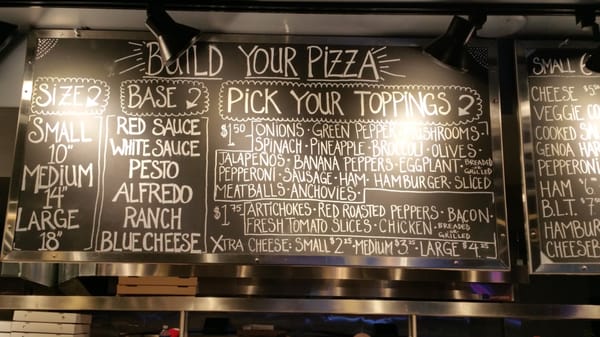 BUILD YOUR PIZZA
SIZE
SMALL
10"
MEDIUM
14"
LARGE
18"
BASE
RED SAUCE
WHITE SAUCE
PESTO
ALFREDO
RANCH
BLUE CHEESE
PICK YOUR TOPPINGS
$1.50
ONIONS · GREEN PEPPER · MUSHROOMS ·
SPINACH · PINEAPPLE · BROCCOLI · OLIVES ·
JALAPEÑOS · BANANA PEPPERS · EGGPLANT · BREADED OR GRILLED
PEPPERONI · SAUSAGE · HAM · HAMBURGER · SLICED
MEATBALLS · ANCHOVIES ·
$1.75
ARTICHOKES · RED ROASTED PEPPERS · BACON ·
FRESH TOMATO SLICES · CHICKEN · BREADED OR GRILLED
XTRA CHEESE: SMALL $2.25 · MEDIUM $3.25 · LARGE $4.25
SMALL
CHEESE
VEGGIE
COOKED SA
GENOA HAR
PEPPERONI
HAM
B.L.T.
HAMBURG
CHEESEB